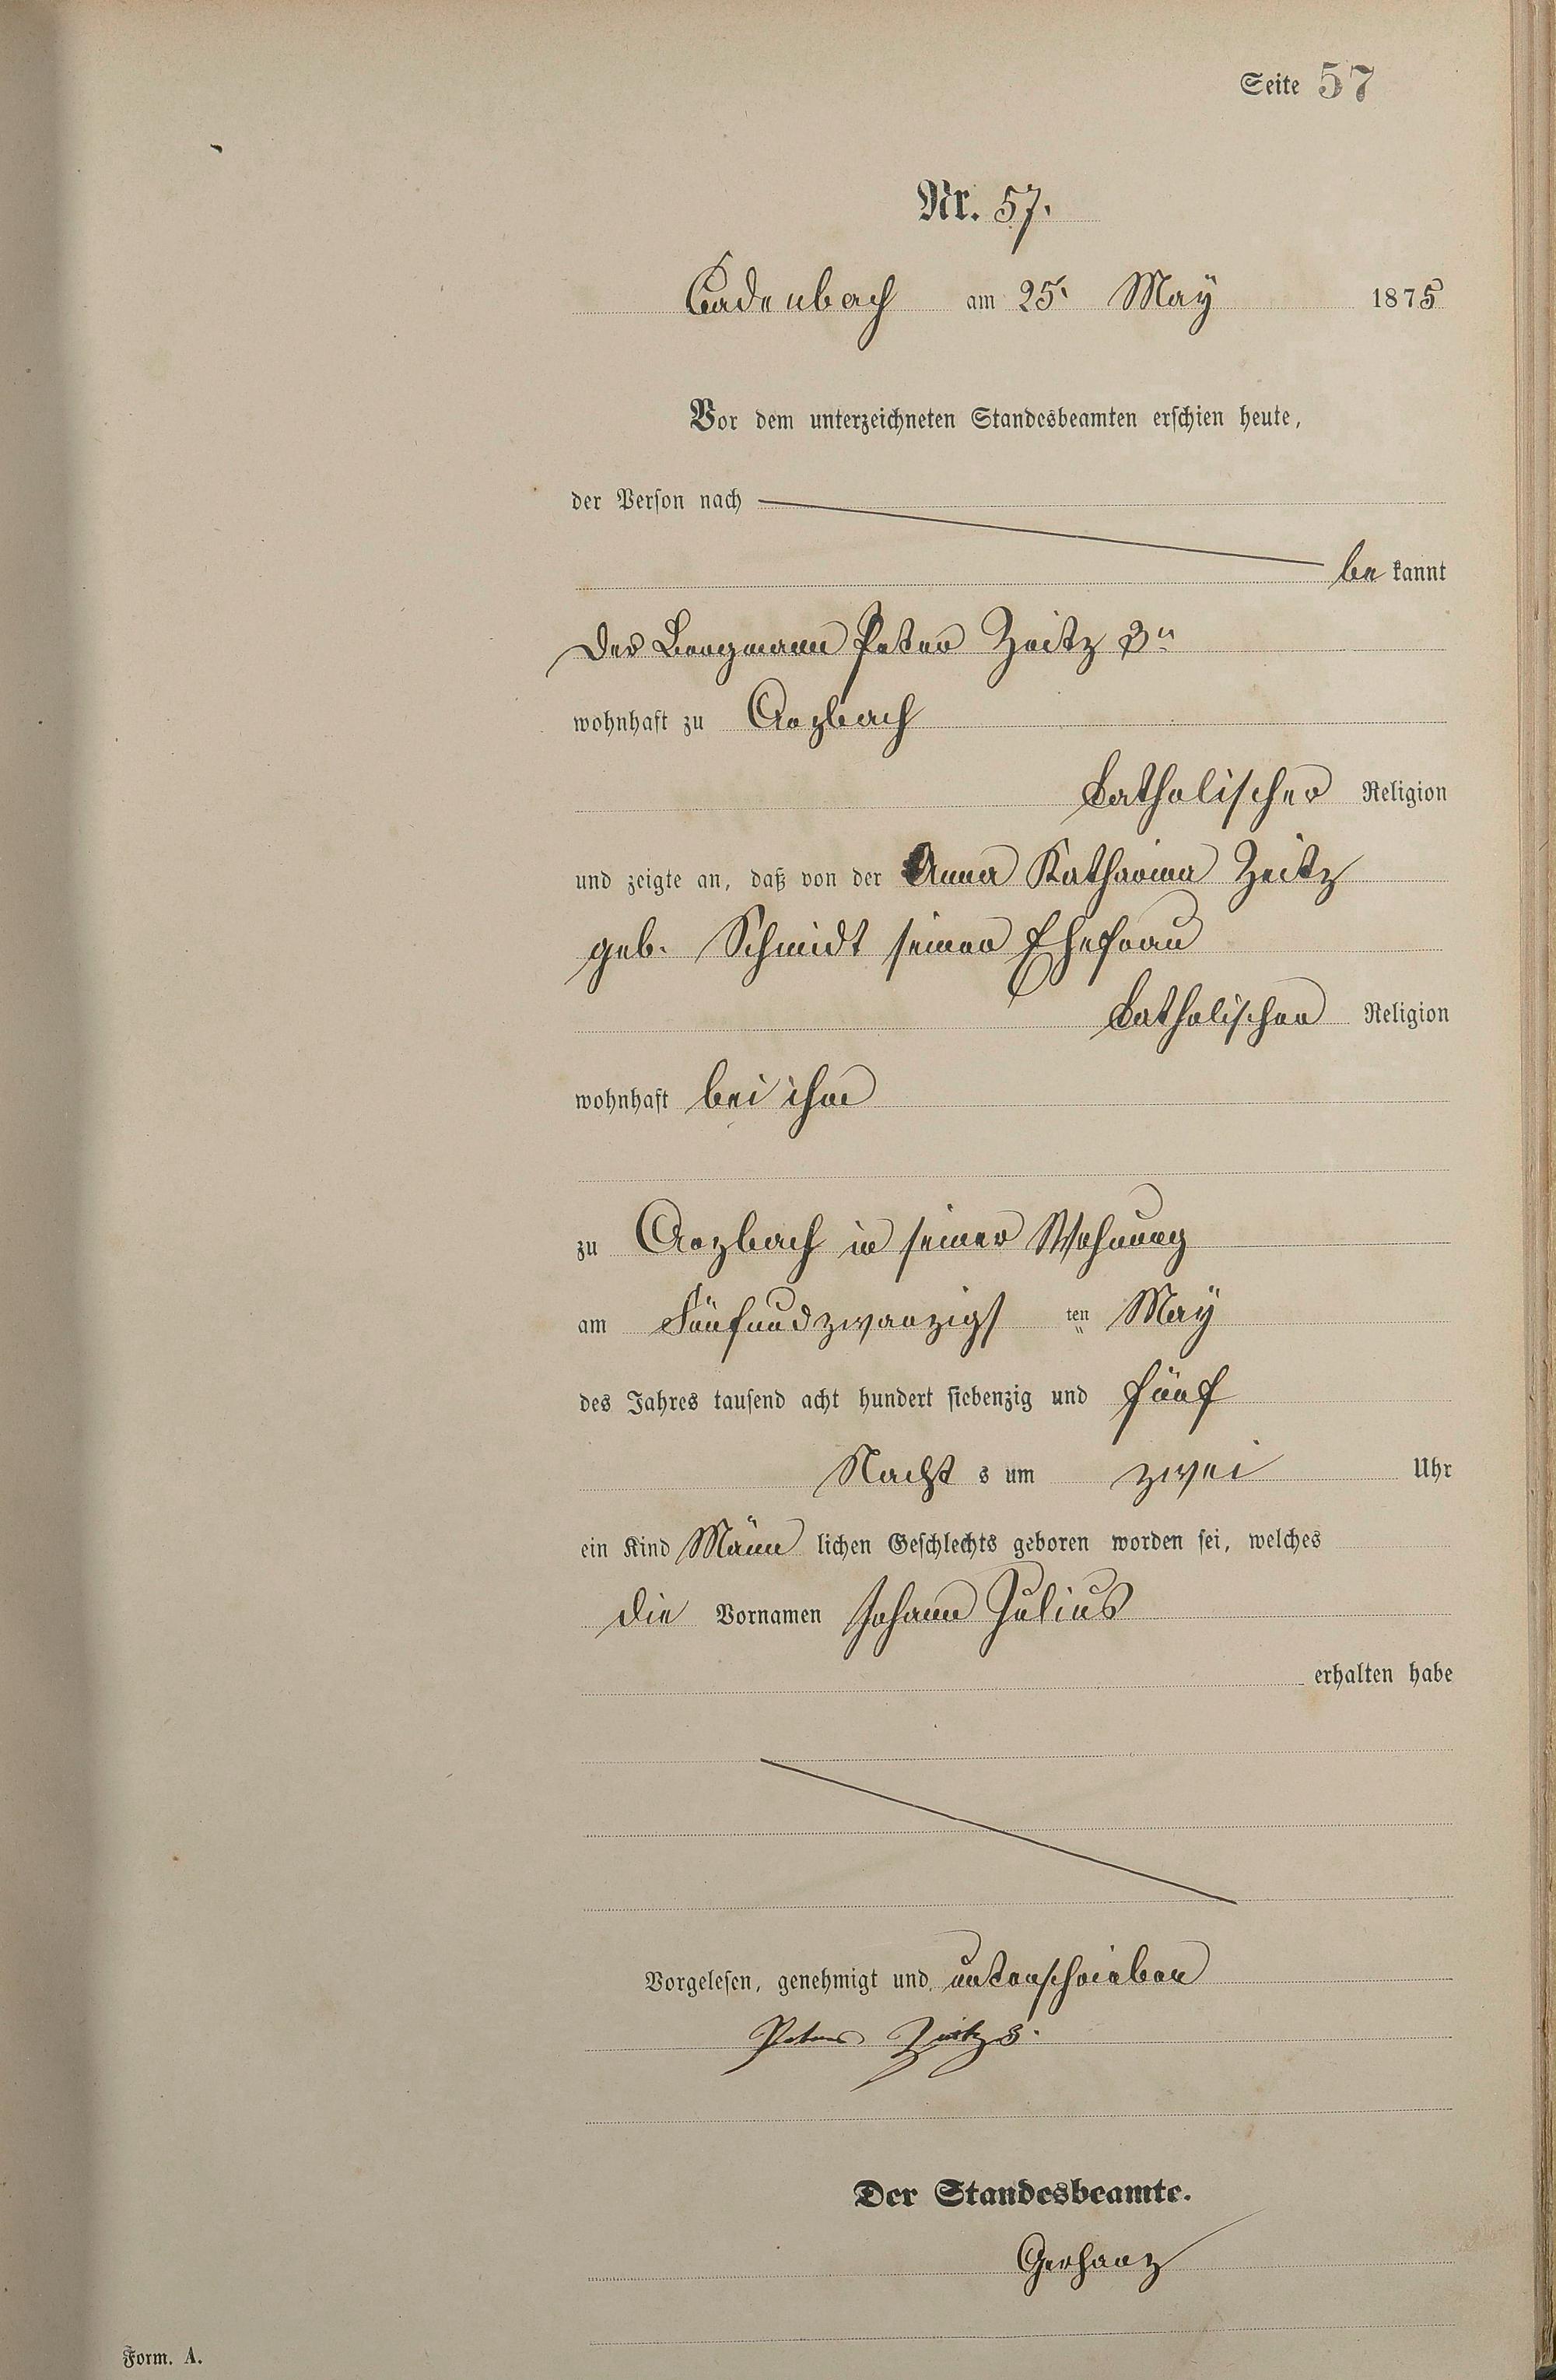 Seite 57
Nr. 57.
Cadenbach am 25. May 1875
Vor dem unterzeichneten Standesbeamten erschien heute,
der Person nach
be kannt
Der Bergmann Peter Zeitz 3r
wohnhaft zu Arzbach
katholischer Religion
und zeigte an, daß von der Anna Katharina Zeitz
geb. Schmidt seiner Ehefrau
katholischer Religion
wohnhaft bei ihm
zu Arzbach in seiner Wohnung
am Fünfundzwanzigs ten May
des Jahres tausend acht hundert siebenzig und fünf
Nacht s um zwei Uhr
ein Kind Männ lichen Geschlechts geboren worden sei, welches
die Vornamen Johann Julius
erhalten habe
Vorgelesen, genehmigt und unterschrieben
Peter Zeitz 3.
Der Standesbeamte.
Gerharz
Form. A.